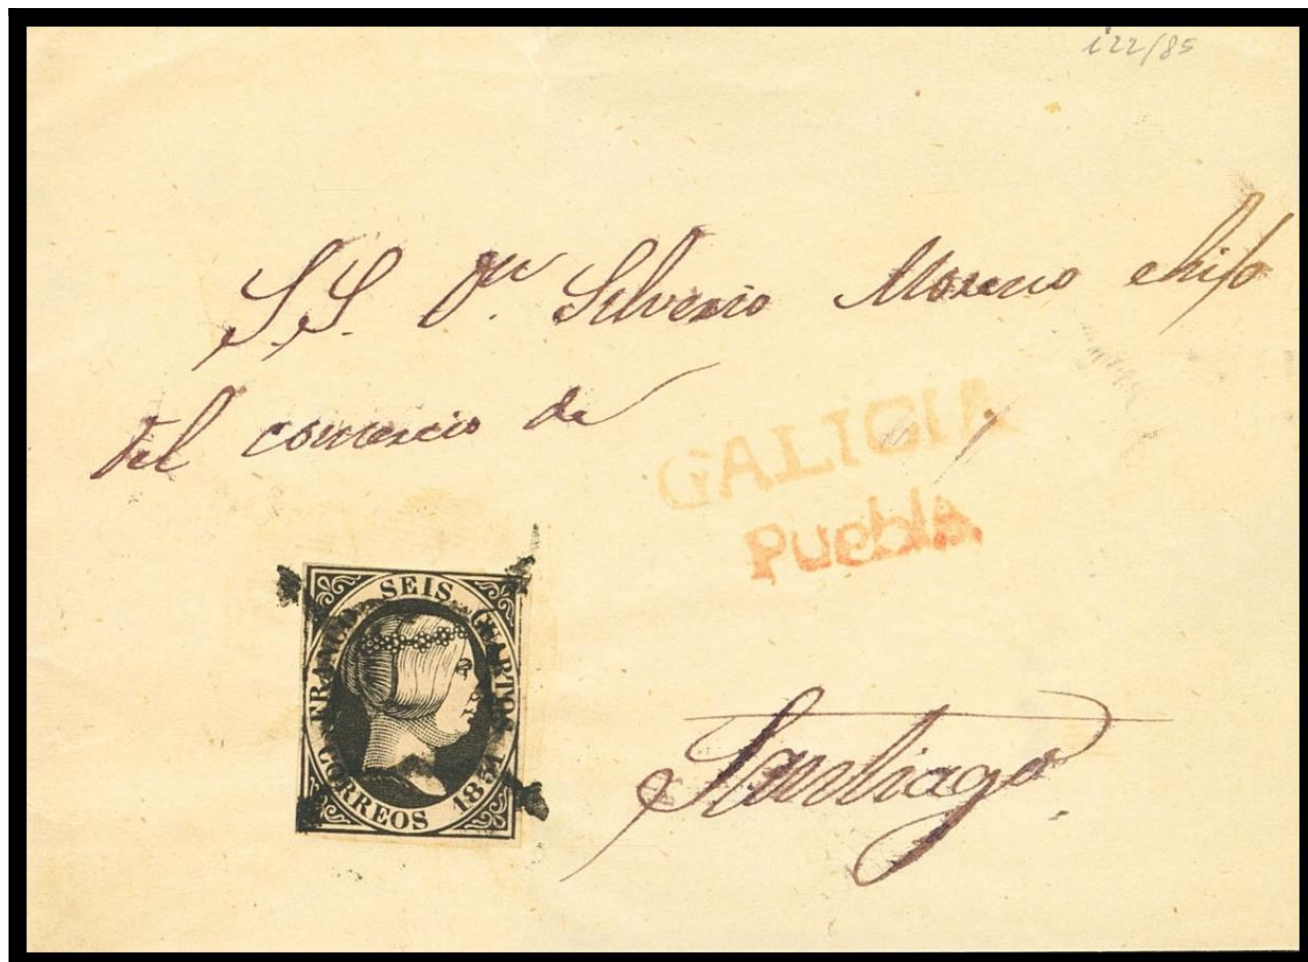 122/85
S.S. Dn. Silverio Moreno e hijo
del comercio de
GALICIA
Puebla
FRANCO SEIS CUARTOS
CORREOS 1851
Santiago.